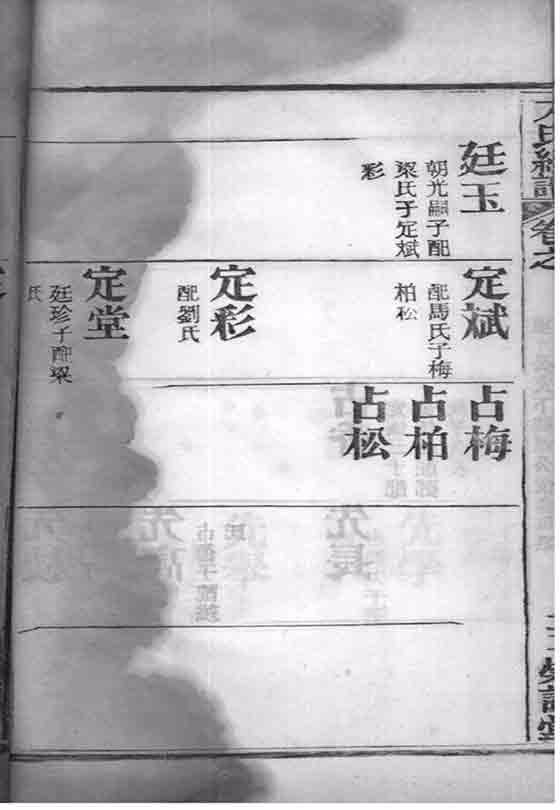 廷玉
朝光嗣子配
梁氏子定斌
彩
定斌
配馬氏子梅
柏松
定彩
配劉氏
定堂
廷珍子配梁
氏
占梅
占柏
占松
卷之